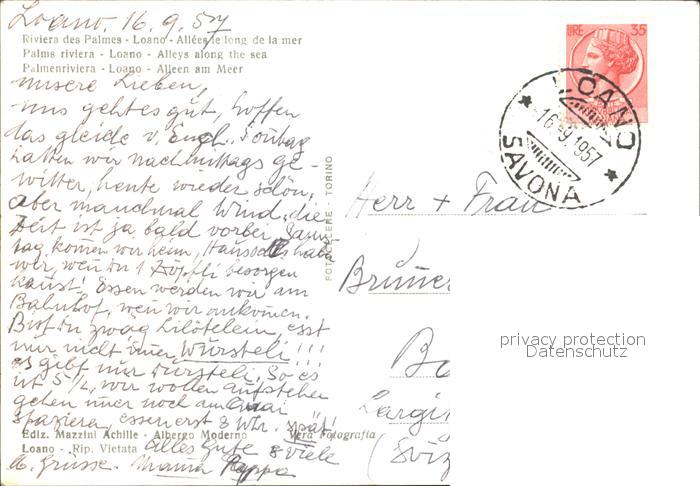 Loano. 16.9.57
Riviera des Palmes - Loano - Allées le long de la mer
Palms riviera - Loano - Alleys along the sea
Palmenriviera - Loano - Alleen am Meer
unsere Lieben,
uns geht es gut, hoffen
das gleiche v. Euch. Sontag
hatten wir nachmittags ge-
witter, heute wieder schön,
aber manchmal Wind. die
Zeit ist ja bald vorbei, Sams-
tag komen wir heim,
wir, wen du 1 Zöpfli besorgen
kanst! Essen werden wir am
Bahnhof, wen wir ankomen.
Bist du zwäg esst
nur nicht imer Würsteli!!!
es gibt nur dürsteli. So es
ist 5 1/2, wir wollen aufstehen
gehen nur noch am Quai
spazieren, essen erst 8 Uhr. spät!
Ediz. Mazzini Achille - Albergo Moderno - Vera Fotografia
Loano - Rip. Vietata
alles Gute & viele
Grüsse. Mama Pappa
FOTOCELERE - TORINO
LIRE 35
LOANO
16-9.1957
SAVONA
Herr + Frau
Bruner
privacy protection
Datenschutz